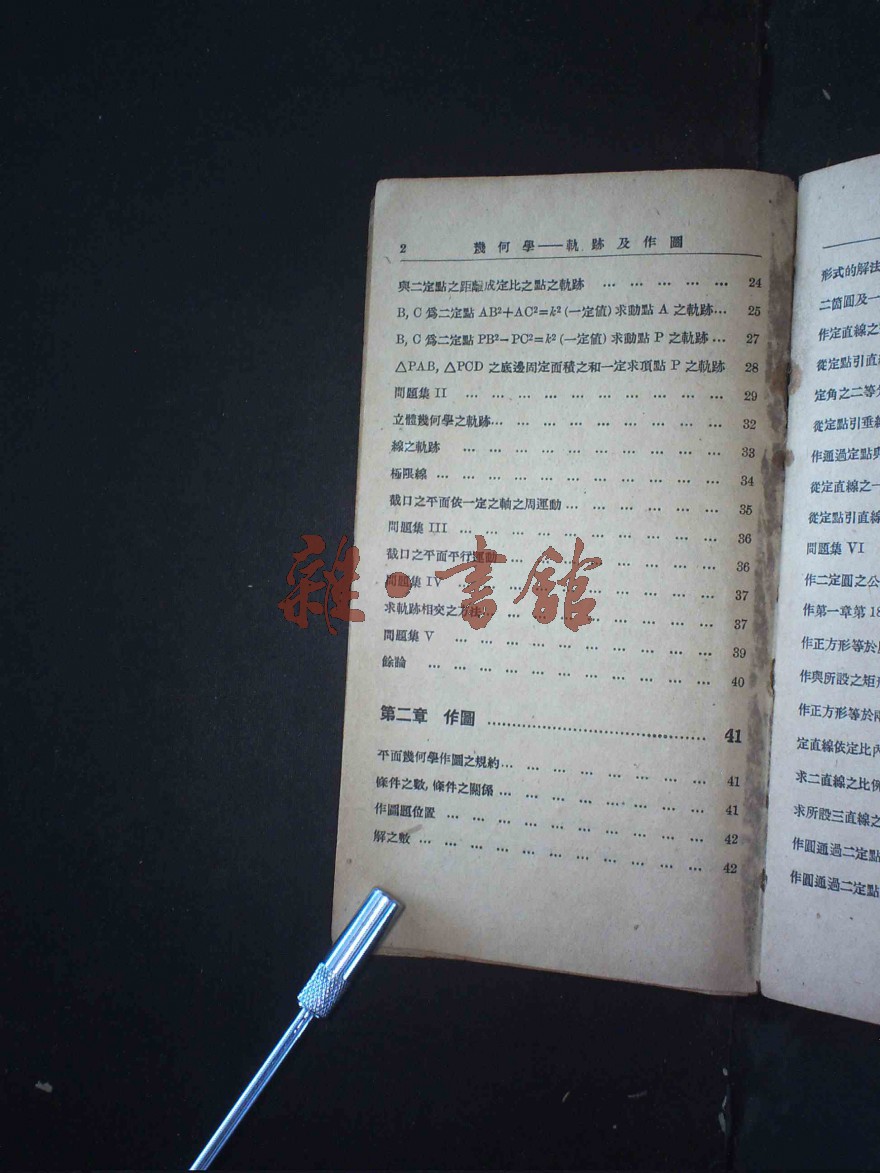 2 幾何學——軌跡及作圖
與二定點之距離成定比之點之軌跡 … … … … … 24
B, C 爲二定點 AB²+AC²=k² (一定值) 求動點 A 之軌跡… 25
B, C 爲二定點 PB²−PC²=k² (一定值) 求動點 P 之軌跡… 27
△PAB, △PCD 之底邊固定面積之和一定求頂點 P 之軌跡 28
問題集 II … … … … … … … … … … 29
立體幾何學之軌跡… … … … … … … … … 32
線之軌跡 … … … … … … … … … … 33
極限線 … … … … … … … … … … … 34
截口之平面依一定之軸之周運動 … … … … … … 35
問題集 III … … … … … … … … … … 36
截口之平面平行運動 … … … … … … … … 36
問題集 IV … … … … … … … … … … 37
求軌跡相交之方法 … … … … … … … … … 37
問題集 V … … … … … … … … … … 39
餘論 … … … … … … … … … … … 40
第二章 作圖 …………………………………… 41
平面幾何學作圖之規約… … … … … … … … 41
條件之數, 條件之關係 … … … … … … … … 41
作圖題位置 … … … … … … … … … … 42
解之數 … … … … … … … … … … … 42
形式的解法
二箇圓及一
作定直線之
從定點引直線
定角之二等分
從定點引垂線
作通過定點與
從定直線之一
從定點引直線
問題集 VI
作二定圓之公
作第一章第 18
作正方形等於
作與所設之矩形
作正方形等於兩
定直線依定比內
求二直線之比例
求所設三直線之
作圓通過二定點
作圓通過二定點
雜·書館